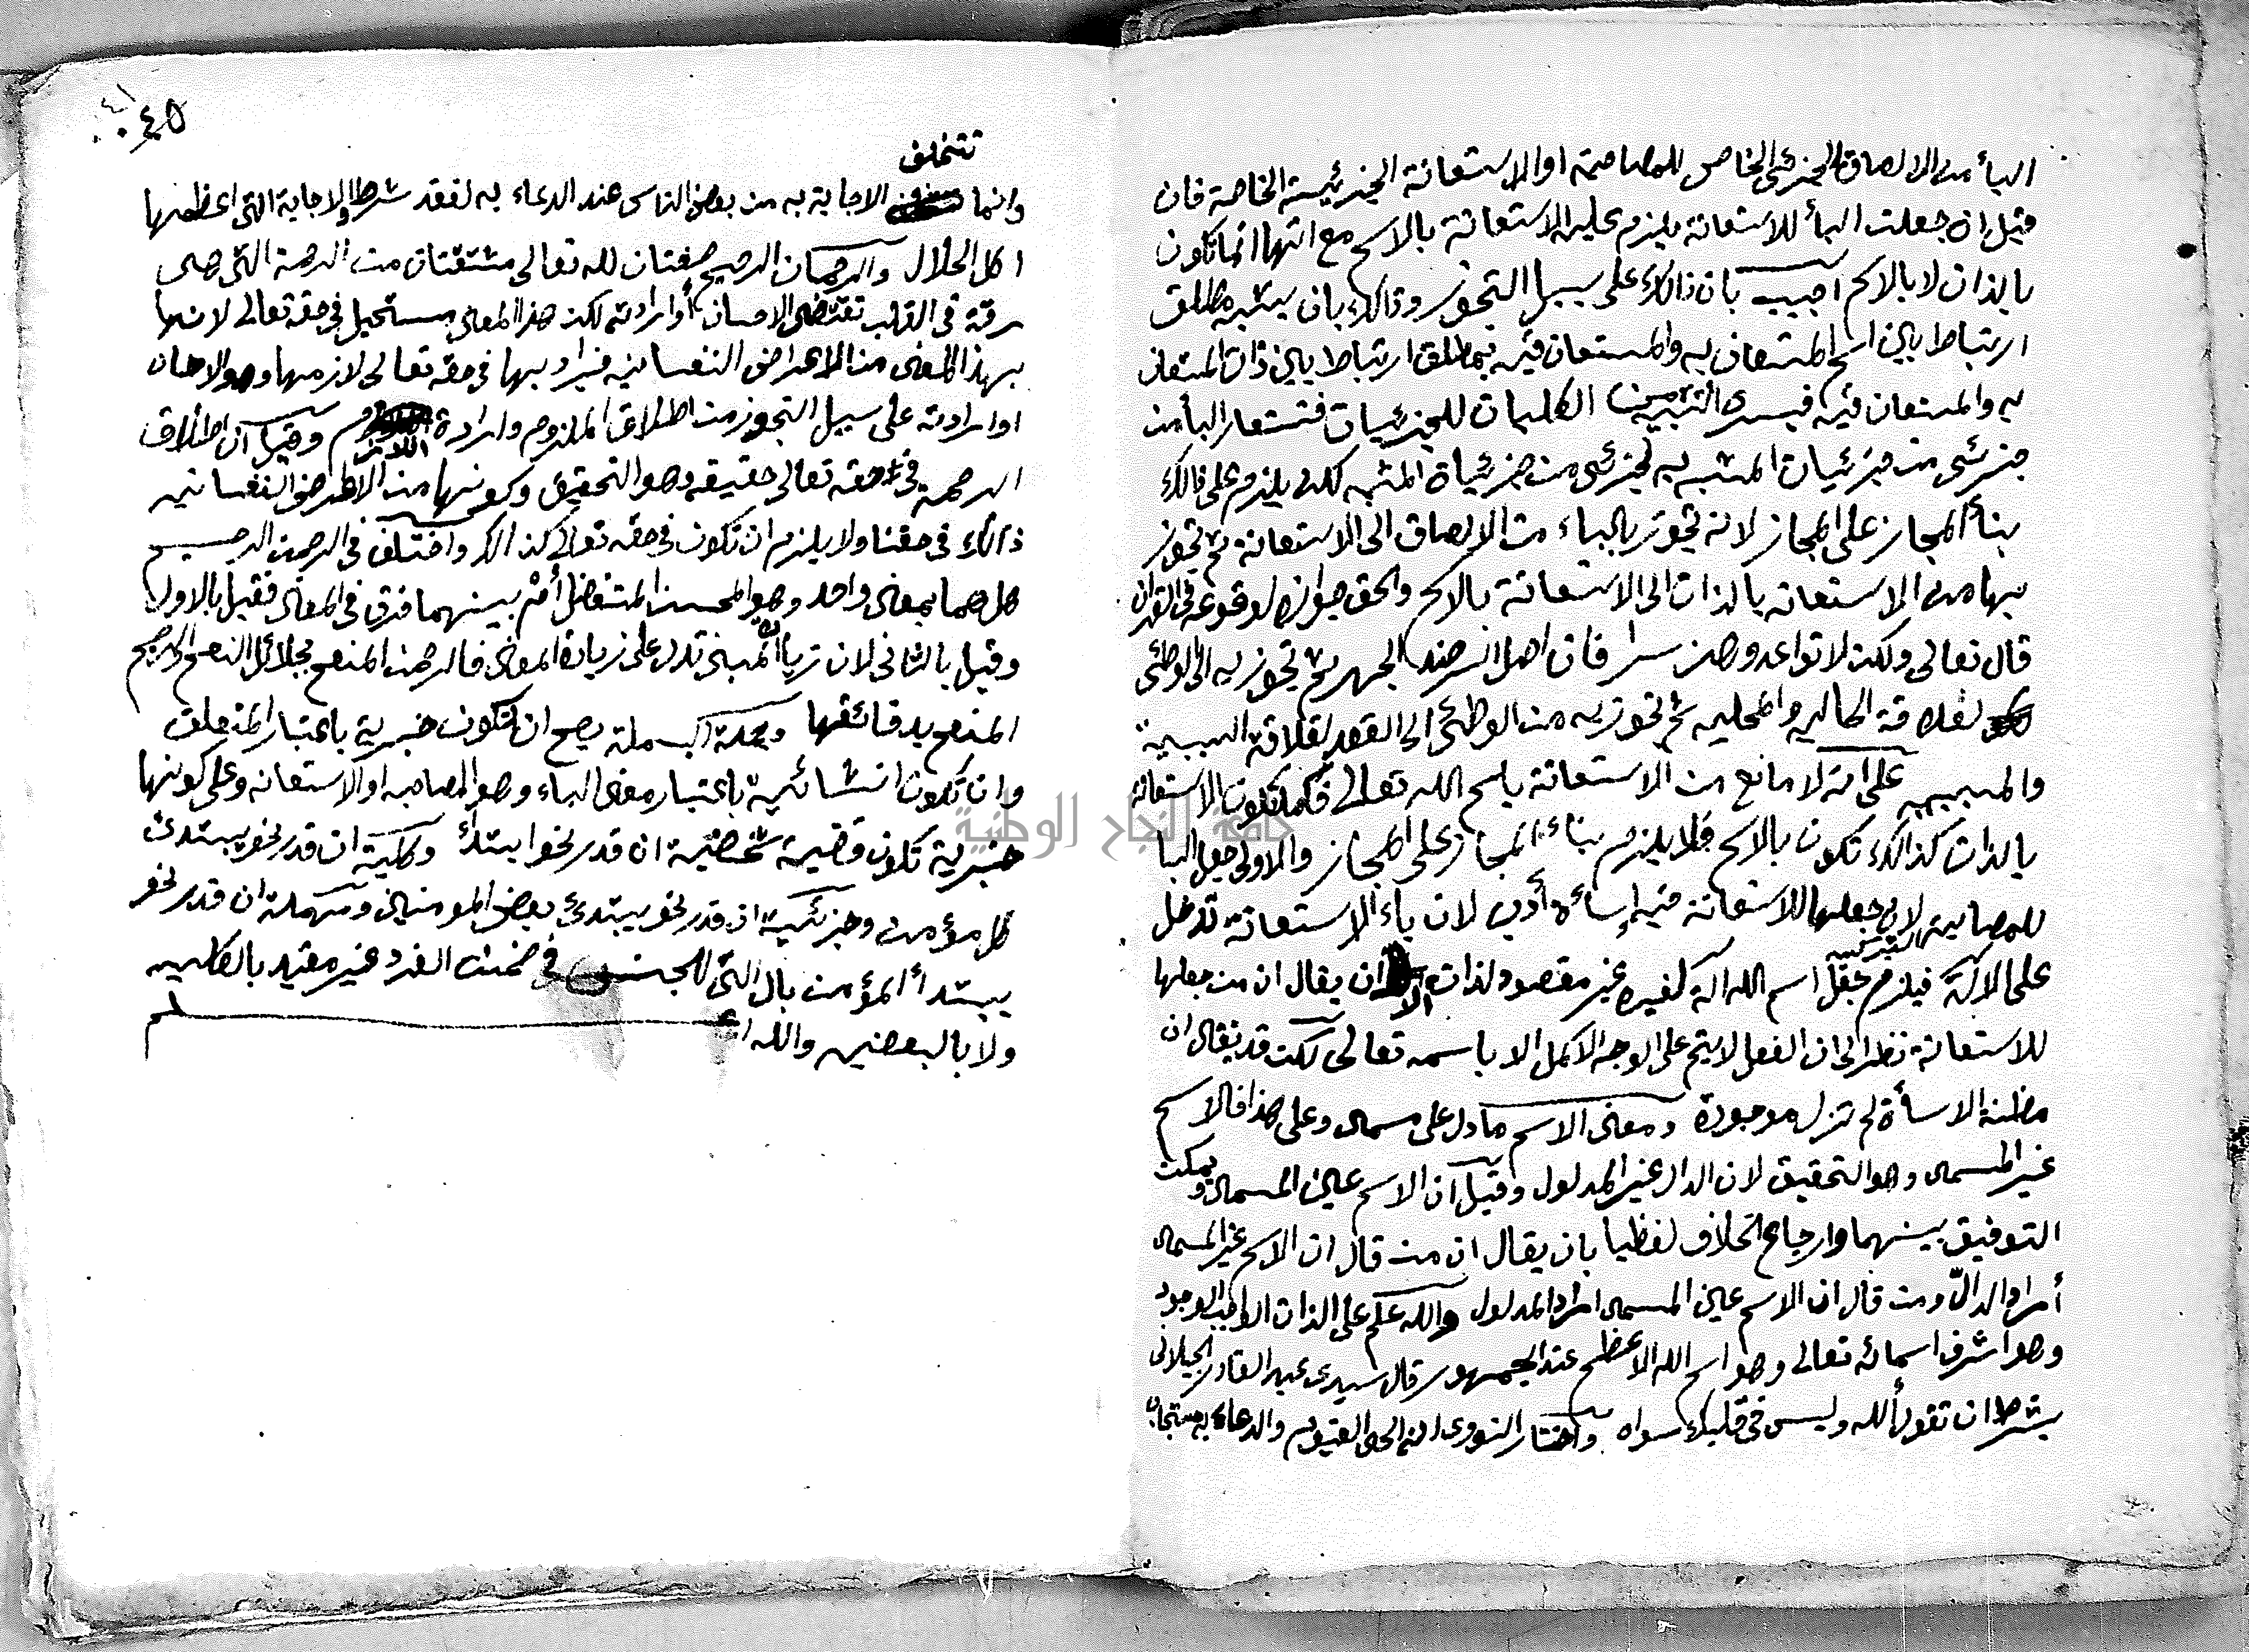 البأ من الالصاق الجزئي الخاص للمصاحبة او الاستعانة الجزئية الخاصة فان
قيل ان جعلت البأ للاستعانة يلزم عليه الاستعانة بالاسم مع انها انما تكون
بالذات لا بالاسم اجيب بان ذالك على سبيل التجوز وذالك بان يشبه مطلق
ارتباط بين اسم المستعان به والمستعان فيه بمطلق ارتباط بين ذات المستعان
به والمستعان فيه فيسرى التشبيه من الكليات للجزئيات فتستعار البأ من
جزئي من جزئيات المشبه به لجزئي من جزئياة المشبه لكن يلزم على ذالك
بنأ المجاز على المجاز لانه تجوز بالباء من الالصاق الى الاستعانة ثم تجوز
بها من الاستعانه بالذات الى الاستعانة بالاسم والحق جوازه لوقوعه في القران
قال تعالى ولكن لا تواعدوهن سرا فان اصل السر ضد الجهر ثم تجوز به الى الوطئ
لعلاقة الحاليه والمحليه ثم تجوز به من الوطئ الى العقد لعلاقة السببية
والمسببيه على انه لا مانع من الاستعانة باسم الله تعالى فكما تكون الاستعانة
بالذات كذالك تكون بالاسم فلا يلزم بناء المجاز على المجاز والاولى جعل البا
للمصاحبة لان جعلها للاستعانة فيه إسأة أدب لان باء الاستعانة تدخل
على الالة فيلزم جعل اسم الله الة لغيره غير مقصود لذاته الا ان يقال ان من جعلها
للاستعانة نظر الى ان الفعل لا يتم على الوجه الاكمل الا باسمه تعالى لكن قد يقال ان
مظنة الاسأة لم تزل موجودة ومعنى الاسم ما دل على مسمى وعلى هذا فالاسم
غير المسمى وهو التحقيق لان الدال غير المدلول وقيل ان الاسم عين المسمى ويمكن
التوفيق بينهما وارجاع الخلاف لفظيا بان يقال ان من قال ان الاسم غير المسمى
أراد الدالّ ومن قال ان الاسم عين المسمى اراد المدلول والله علم على الذات الواجب الوجود
وهو اشرف اسمائه تعالى وهو اسم الله الاعظم عند الجمهور قال سيدى عبد القادر الجيلاني
بشرط ان تقول ألله وليس في قلبك سواه واختار النووى انه الحي القيوم والدعاء به مستجاب
٤٥
تتخلف
وانما الاجابة به من بعض الناس عند الدعاء به لفقد شروط الاجابة التي اعظمها
اكل الحلال والرحمان الرحيم صفتان لله تعالى مشتقتان من الرحمة التي هي
رقة في القلب تقتضي الاحسان أو ارادته لكن هذا المعنى مستحيل في حقه تعالى لانها
بهذا المعنى من الاعراض النفسانيه فيراد بها في حقه تعالى لازمها وهو الاحسان
او ارادته على سبيل التجوز من اطلاق الملزوم وارادة اللازم وقيل ان اطلاق
الرحمة في حقه تعالى حقيقه وهو التحقيق وكونها من الاعراض النفسانيه
ذالك في حقنا ولا يلزم ان تكون في حقه تعالى كذالك واختلف في الرحمن الرحيم
هل هما بمعنى واحد وهو المحسن المتفضل أم بينهما فرق في المعنى فقيل بالاول
وقيل بالثاني لان زيادة المبنى تدل على زيادة المعنى فالرحمن المنعم بجلائل النعم الرحيم
المنعم بدقائقها وجملة البسملة يصح ان تكون خبرية باعتبار المتعلق
وان تكون انشائية باعتبار معنى الباء وهو المصاحبه او الاستعانه وعلى كونها
خبرية تكون قضية شخصية ان قدر نحو ابتدأ وكلية ان قدر نحو يبتدئ
كل مؤمن وجزئية ان قدر نحو يبتدئ بعض المومنين ومهملة ان قدر نحو
يبتدأ المؤمن بال التي للجنس في ضمن الفرد غير مقيد بالكليه
ولا بالبعضيه والله اعلم
جامعة النجاح الوطنية